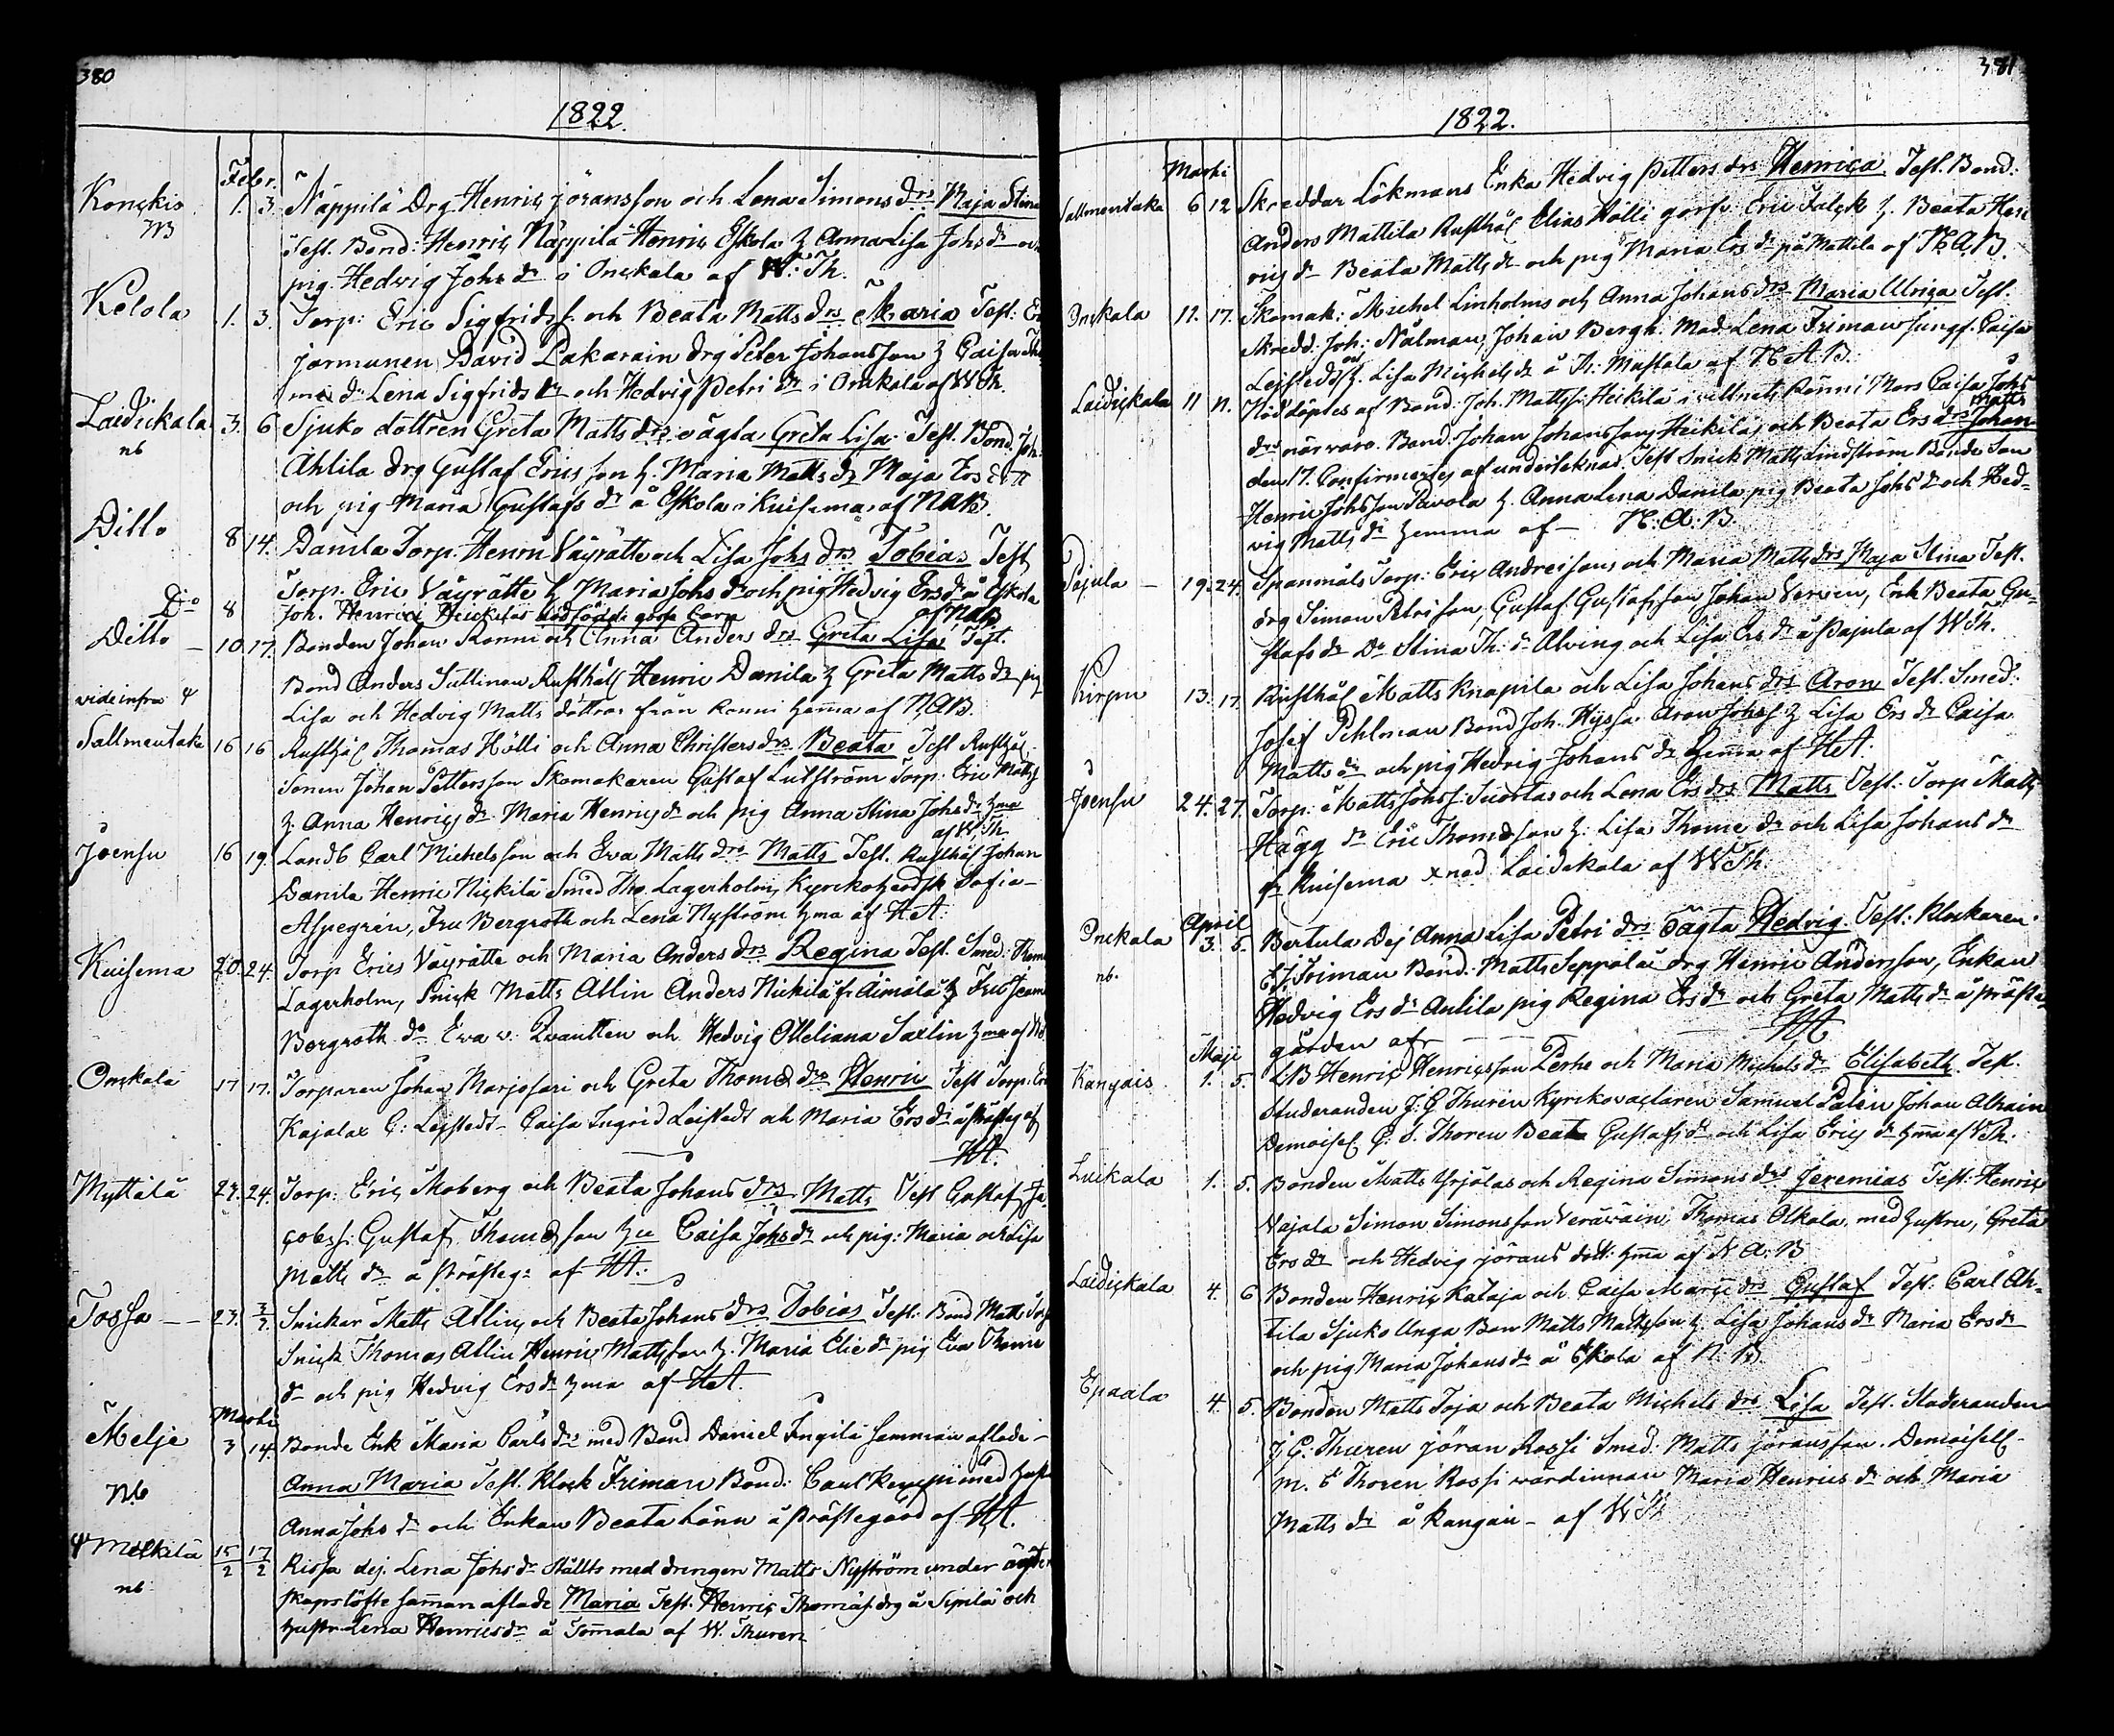 380
1822.
Febr.
Konckis 1. 3. Näppilä Drg. Henric Jöransson och Lena Simons drs Maja Stina
NB Test. Bond: Henric Näppilä Henric Eskola h Anna Lisa Johs dr och
pig. Hedvig Johs dr i Onckala af W: Th.
Kelola 1. 3. Torp: Eric Sigfrids s. och Beata Matts drs Maria Test:
Jarmunen David Lakarain drg Peter Johansson h Caisa
dr Lena Sigfrids dr och Hedvig Petri dr i Onckala af W Th.
Laidickala 3. 6 Sjuko dottren Greta Matts drs oägta Greta Lisa Test. Bond. Joh:
nb Ahlila drg Gustaf Ericsson h. Maria Matts dr Maja Ers dr
och pig Maria Gustafs dr å Eskola i Kuisema af NAB.
Ditto 8 14. Danila Torp. Henric Väyrätte och Lisa Johs drs Tobias Test
Torp. Eric Väyrätte h Maria Johs dr och pig Hedvig Ers dr å Eskola
Do 8 Joh. Henrici Heickiläs dödfödde gosse barn af NAB
Ditto — 10. 17. Bonden Johan Ronni och Anna Anders drs Greta Lisa Test.
Bond Anders Suttinen Rusthåll Henric Danila h Greta Matts dr pig
vide infra Ψ Lisa och Hedvig Matts döttrar från Ronni hemma af NAB.
Sallmentaka 16 16 Rusthål Thomas Hölli och Anna Christers drs Beata Test Rusthål
Sonen Johan Pettersson Skomakaren Gustaf Lutström Torp: Eric Matts
h. Anna Henrics dr Maria Henrics dr och pig Anna Stina Johs dr hma
af W. Th
Joensu 16 19. Landb Carl Michelsson och Eva Matts drs Matts Test. Rusthål Johan
Danila Henric Nickilä Smed Tho. Lagerholm, Kyrkoherdsk Sofia
Aspegrén, Fru Bergroth och Lena Nyström hma af HA:
Kuisema 20. 24. Torp Erics Väyrätte och Maria Anders drs Regina Test. Smed:
Lagerholm, Snick Matts Allin Anders Nickilä fr Aimälä h
Bergroth do Eva v. Qvantten och Hedvig Otteliana Saxlin hma af
Onckala 17 17. Torparen Johan Marjosari och Greta Thome drs Henric Test Torp.
Kajalax C: Leistedt Caisa Ingrid Leistedt och Maria Ers dr å Prästeg af
HA.
Myttälä 24. 24. Torp: Eric Moberg och Beata Johans drs Matts Test Gustaf Ja-
cobss: Gustaf Thomesson hu Caisa Johs dr och pig: Maria och Lisa
Matts dr å Prästeg: af HA:
Tossa — 23. 3/3 Snickar Matts Allins och Beata Johans drs Tobias Test. Bond Matts
Snick Thomas Allin Henric Mattsson h. Maria Elie dr pig Eva Thome
dr och pig Hedvig Ers dr hma af HA.
Martii
Melje 3 14. Bonde Enk Maria Carls dr med Bond Daniel Ingilä samman aflade
Nb Anna Maria Test. Klock Friman Bond. Carl Keppi med hust
Anna Johs dr och Enkan Beata Lönn å Prästegård af HA.
Ψ Melkilä 15/2 17/2 Rissa dej. Lena Johs dr Ställts med drengen Matts Nyström under ägten
nb skapslöfte samman aflade Maria Test. Henric Thomas. drg å Sipilä och
hustr Lena Henrics dr å Tommala af W. Thuren
381
1822.
Martii
Sallmentaka 6 12 Skreddar Lökmans Enka Hedvig Petters drs Henrica, Test. Bond:
Anders Mattila Rusthål Elias Hölli gosse Eric Falck h. Beata Hen-
rics dr Beata Matts dr och pig Maria Ers dr på Mattila af N.A.B.
Onckala 11. 17. Skomak: Michel Linholms och Anna Johans drs Maria Ulrica Test.
Skredd: Joh: Nälman, Johan Bergh. Mad: Lena Friman Jungf. Caisa
Leistedt och h. Lisa Michels dr å Pr: Mustala af N. A. B.
Laidickala 11 17. Nöddöptes af Bond. Joh. Mattss. Heikilä i vittnets Ronni Mors Caisa Johs
Matts
drs närvaro. Bond: Johan Johanssons Heikiläs och Beata Ers drs Johan
den 17. Confirmerades af undertecknad. Test Snick Matts Lindström Bonde Son
Henric Johsson Pavola h. Anna Lena Danila pig Beata Johs dr och Hed-
vig Matts dr hemma af — N. A. B.
Pajula — 19. 24. Spanmåls Torp: Eric Andreissons och Maria Matts drs Maja Stina Test.
drg Simon Petrisson, Gustaf Gustafsson, Johan Verven, Enk Beata Gu-
stafs dr Do Stina Th: dr Alving och Lisa Ers dr å Pajula af W Th.
Kirpu 13. 17. Rusthål Matts Knapila och Lisa Johans drs Aron Test. Smed:
Josef Pihlman Bond Joh. Hyssa Aron Johss h Lisa Ers dr Caisa
Matts dr och pig Hedvig Johans dr hemma af HA.
Joensu 24. 27. Torp: Matts Johss: Suortas och Lena Ers drs Matts Test: Torp Matts
Hägg dr Eric Thomesson h: Lisa Thome dr och Lisa Johans dr
fr Kuisema Laidickala af W Th.
April
Onckala 3. 5. Bertula Dej Anna Lisa Petri drs oägta Hedvig. Test: Klockaren
nb. E.J. Friman Bond. Matts Seppälä drg Henric Andersson, Enkan
Hedvig Ers dr Antila pig Regina Ers dr och Greta Matts dr å präste-
gården af — — — HA
Maji
Kangais 1. 5. LB Henric Henricsson Perhe och Maria Michels dr Elisabeth Test.
Studeranden J: G Thurén Kyrkovactaren Samuel Palén Johan Alhain
Demoisel C. S. Thoren Beata Gustafs dr och Lisa Erics dr hma af W Th.
Luikala 1. 5. Bonden Matts Yrjölas och Regina Simons drs Jeremias Test: Henric
Najala Simon Simonsson Veräväin, Thomas Olkala med hustru, Greta
Ers dr och Hedvig Jörans dott: hma af N. A. B
Laidickala 4. 6 Bonden Henric Kataja och Caisa Marci drs Gustaf Test. Carl Ah-
tila Sjuko Unga Bon Matts Mattsson h. Lisa Johans dr Maria Ers dr
och pig Maria Johans dr å Eskola af N. B.
Epaala 4. 5. Bonden Matts Toja och Beata Michels drs Lisa Test. Studeranden
J. G. Thuren Jöran Rossi Smed. Matts Jöransson. Demoisell
M. E Thoren Rossi vardinnan Maria Henrics dr och Maria
Matts dr å Kangais — af W Th